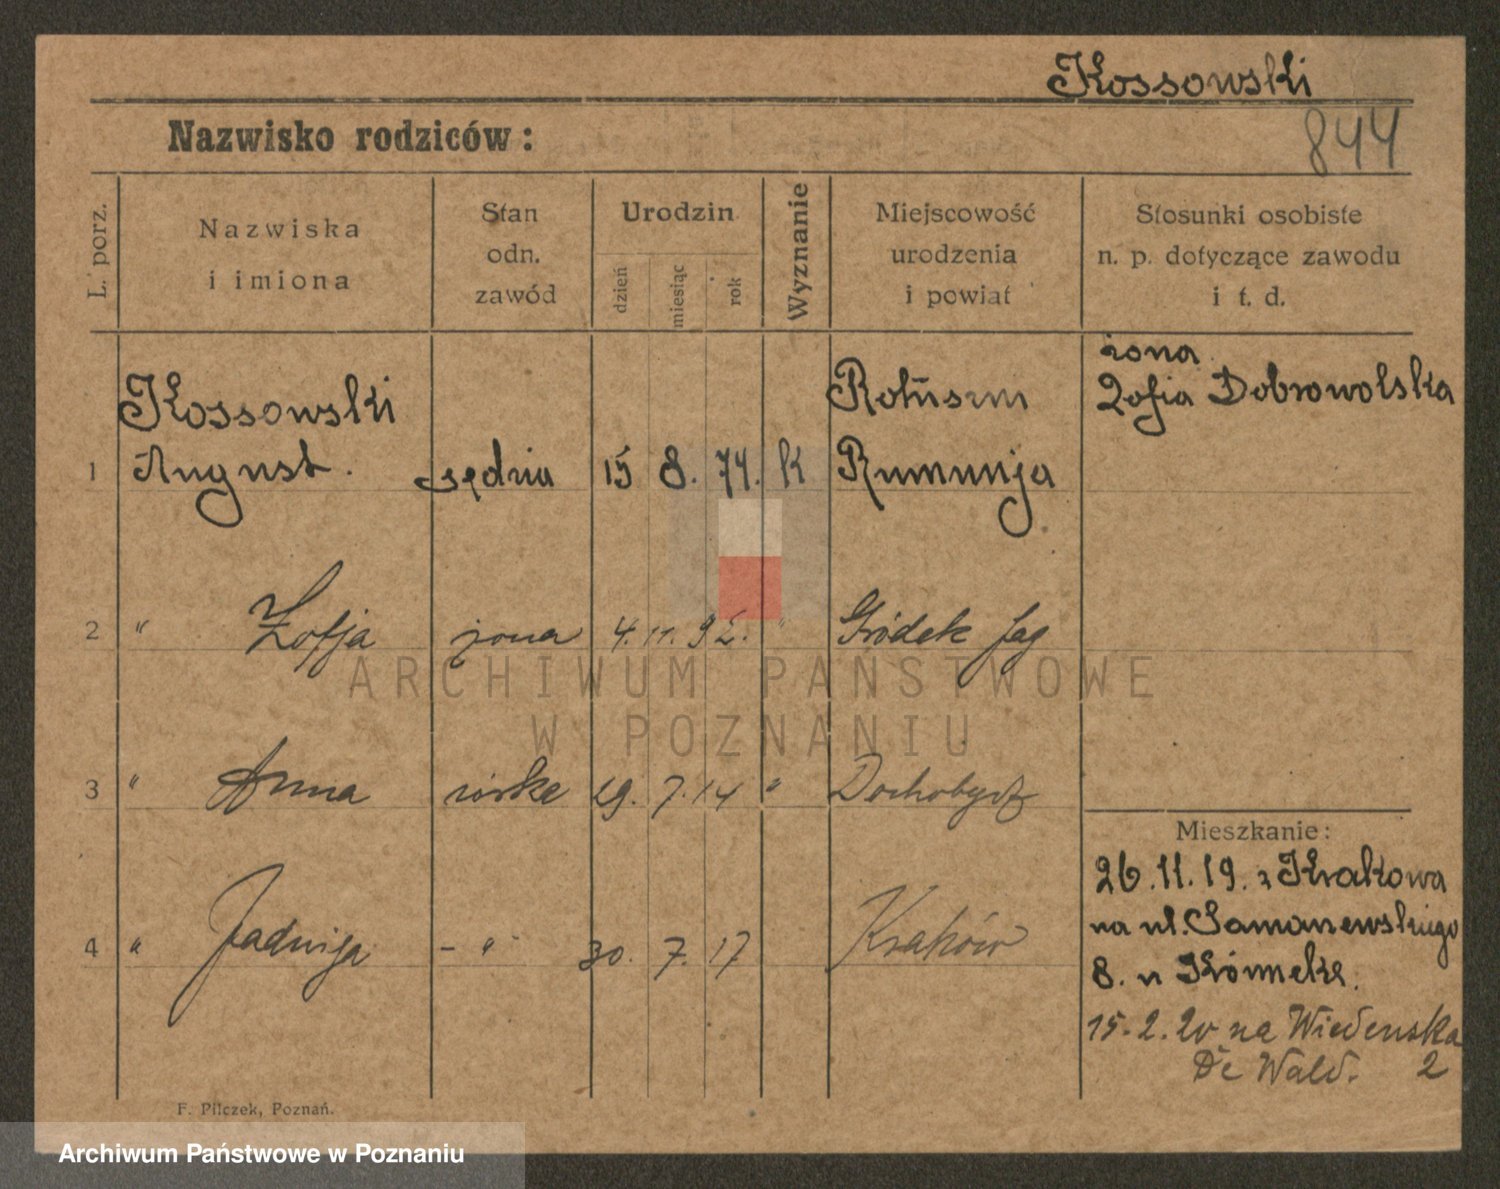 Kossowski
844
Nazwisko rodziców:
L. porz.
Nazwiska
i imiona
Stan
odn.
zawód
Urodzin
dzień
miesiąc
rok
Wyznanie
Miejscowość
urodzenia
i powiat
Stosunki osobiste
n. p. dotyczące zawodu
i t. d.
żona
Zofia Dobrowolska
Kossowski
1 August. sędzia 15 8. 74. k Rumunja
2 " Zofja żona 4. 11. 92. " Gródek Jag
3 " Anna córka 29. 7. 14 "
4 " Jadwiga - " - 30. 7. 17 Kraków
Mieszkanie:
26.11.19. z Krakowa
na ul.
8. u
15.2.20 na Wiedenska
2
F. Pilczek, Poznań.
ARCHIWUM PAŃSTWOWE
W POZNANIU
Archiwum Państwowe w Poznaniu